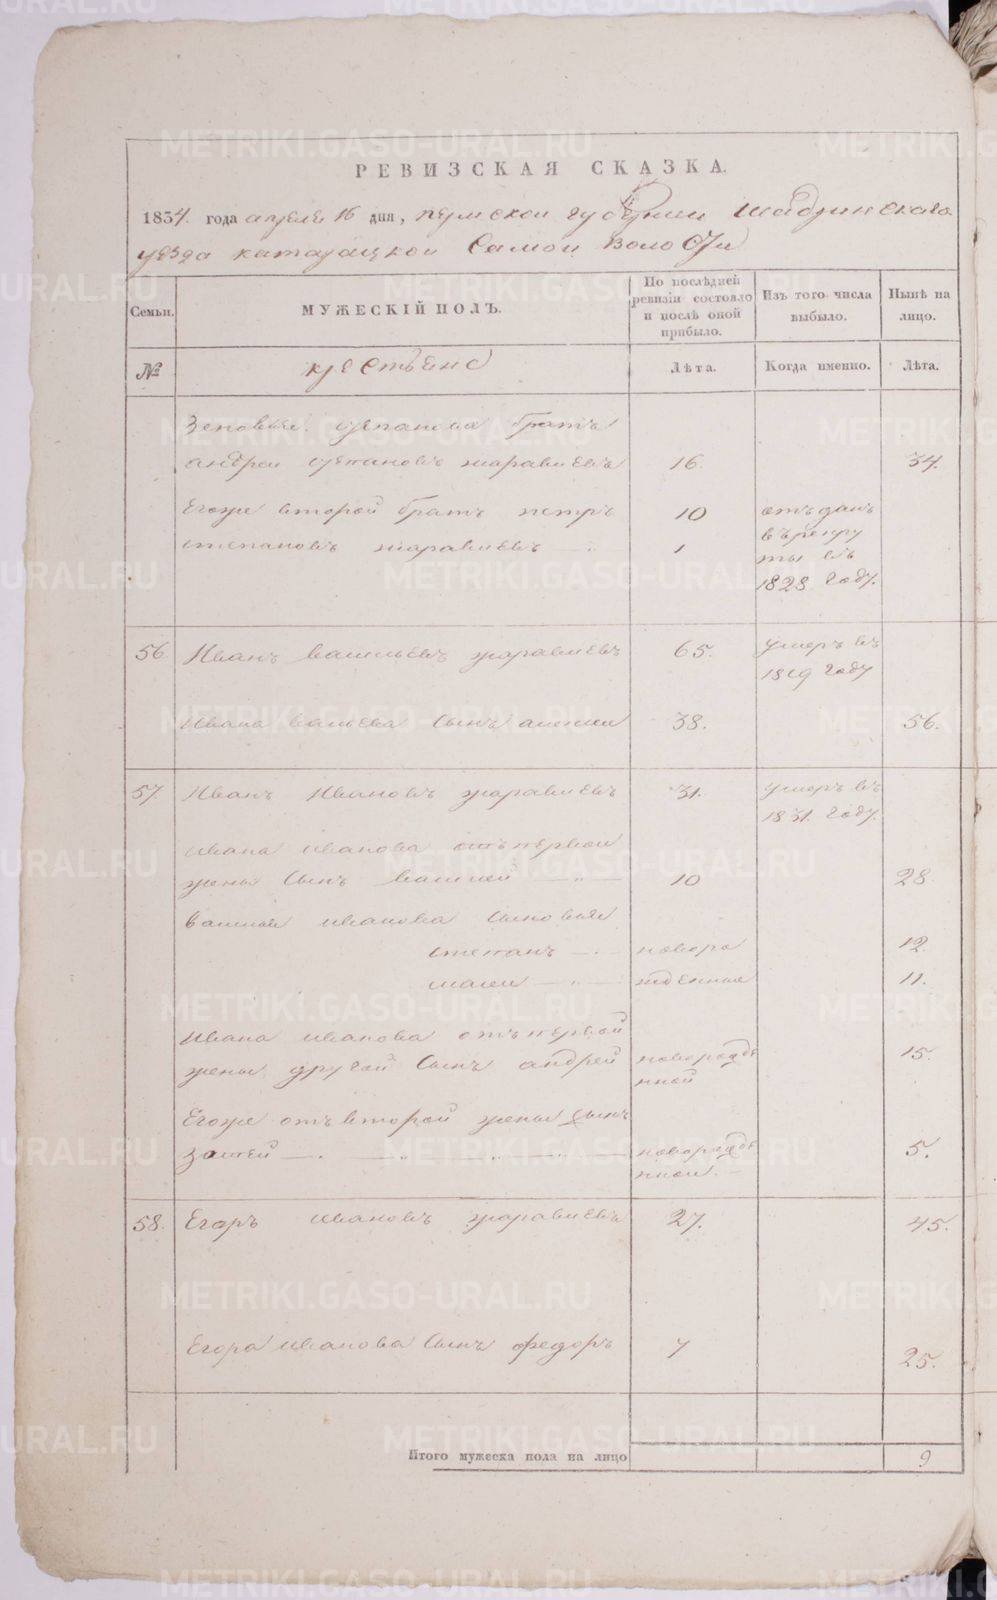 РЕВИЗСКАЯ СКАЗКА.
1834. года апреля 16 дня, пермской губернии Шадринскаго
уезда катайской самой волости
Семьи.
МУЖЕСКІЙ ПОЛЪ.
По послѣдней ревизіи состояло и послѣ оной прибыло.
Изъ того числа выбыло.
Нынѣ на лицо.
№
крестьяне
Лѣта.
Когда именно.
Лѣта.
Зеновья степанова братъ
андреи степановъ жаравлевъ 16. 34.
Егоже второй братъ петръ 10 отъданъ
степановъ жаравлевъ 1 въ рекру
ты въ
1828 году.
56 Иванъ васильевъ жаравлевъ 65. умеръ въ
1819 году
Ивана сынъ алексеи 38. 56.
57. Иванъ Ивановъ жаравлевъ 31. умеръ въ
1831. году.
ивана иванова отъ первои
жены сынъ василей 10 28
василья иванова сыновья
степанъ новоро 12.
жденные 11.
Ивана иванова отъ первой
жены другой сынъ андрей новорожде 15.
нной
Егоже отъ второй жены сынъ
новорожде 5.
ннои.
58. Егоръ ивановъ жаравлевъ 27. 45.
Егора иванова сынъ федоръ 7 25.
Итого мужеска пола на лицо 9
METRIKI.GASO-URAL.RU